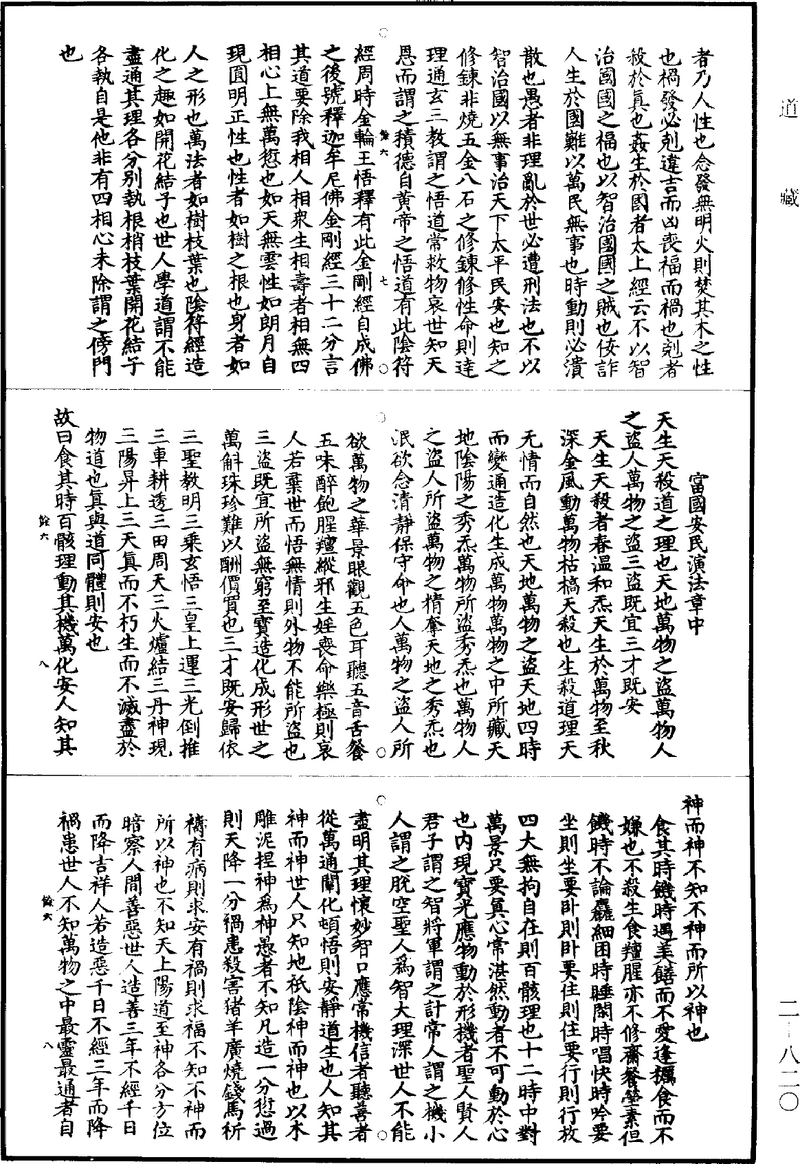 道藏
者乃人性也念發無明火則焚其木之性
也禍發必剋違吉而凶喪福而禍也剋者
殺於真也姦生於國者太上經云不以智
治國國之福也以智治國國之賊也佞詐
人生於國難以萬民無事也時動則必潰
散也愚者非理亂於世必遭刑法也不以
智治國以無事治天下太平民安也知之
修鍊非燒五金八石之修鍊修性命則達
理通玄三教謂之悟道常救物哀世知天
恩而謂之積德自黃帝之悟道有此陰符
餘六 七
經周時金輪王悟釋有此金剛經自成佛
之後號釋迦牟尼佛金剛經三十二分言
其道要除我相人相衆生相壽者相無四
相心上無萬愆也如天無雲性如朗月自
現圓明正性也性者如樹之根也身者如
人之形也萬法者如樹枝葉也陰符經造
化之趣如開花結子也世人學道謂不能
盡通其理各分別執根梢枝葉開花結子
各執自是他非有四相心未除謂之傍門
也
富國安民演法章中
天生天殺道之理也天地萬物之盜萬物人
之盜人萬物之盜三盜既宜三才既安
天生天殺者春溫和炁天生於萬物至秋
深金風動萬物枯槁天殺也生殺道理天
无情而自然也天地萬物之盜天地四時
而變通造化生成萬物萬物之中所藏天
地陰陽之秀炁萬物所盜秀炁也萬物人
之盜人所盜萬物之精奪天地之秀炁也
泯欲念清靜保守命也人萬物之盜人所
欲萬物之華景眼觀五色耳聽五音舌餐
五味醉飽腥羶縱邪生婬喪命樂極則哀
人若棄世而悟無情則外物不能所盜也
三盜既宜所盜無窮至寶造化成形世之
萬斛珠珍難以酬價買也三才既安歸依
三聖教明三乘玄悟三皇上運三光倒推
三車耕透三田周天三火爐結三丹神現
三陽昇上三天真而不朽生而不滅盡於
物道也真與道同體則安也
故曰食其時百骸理動其機萬化安人知其
餘六 八
神而神不知不神而所以神也
食其時饑時遇美饍而不愛逢糲食而不
嫌也不殺生食羶腥亦不修齋餐葷素但
饑時不論麤細困時睡閑時唱快時吟要
坐則坐要卧則卧要住則住要行則行放
四大無拘自在則百骸理也十二時中對
萬景只要真心常湛然動者不可動於心
也内現寶光應物動於形機者聖人賢人
君子謂之智將軍謂之計常人謂之機小
人謂之脫空聖人爲智大理深世人不能
盡明其理懷妙智口應常機信者聽善者
從萬通闡化頓悟則安靜道生也人知其
神而神世人只知地祇陰神而神也以木
雕泥捏神爲神愚者不知凡造一分愆過
則天降一分禍患殺害猪羊廣燒錢馬祈
禱有病則求安有禍則求福不知不神而
所以神也不知天上陽道至神各分方位
暗察人間善惡世人造善三年不經千日
而降吉祥人若造惡千日不經三年而降
禍患世人不知萬物之中最靈最通者自
餘六 八
二-八二〇